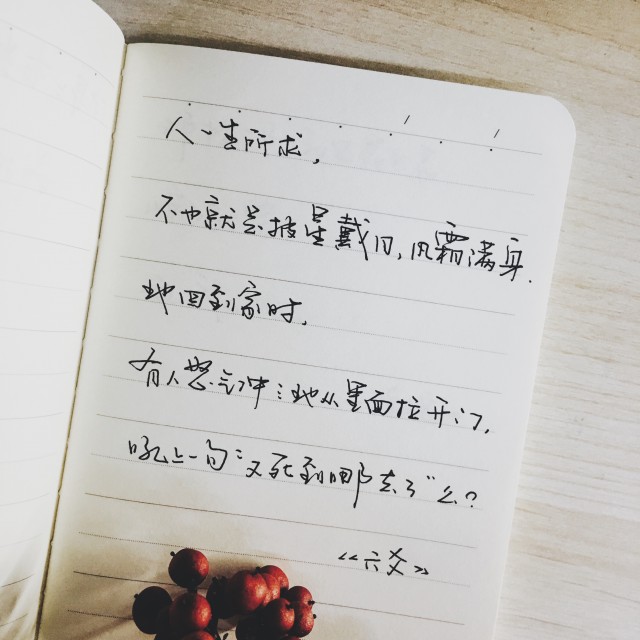 人一生所求，
不也就是披星戴月，风霜满身，
地回到家时，
有人怒气冲冲地从里面拉开门，
吼上一句“又死到哪去了”么？
《六爻》